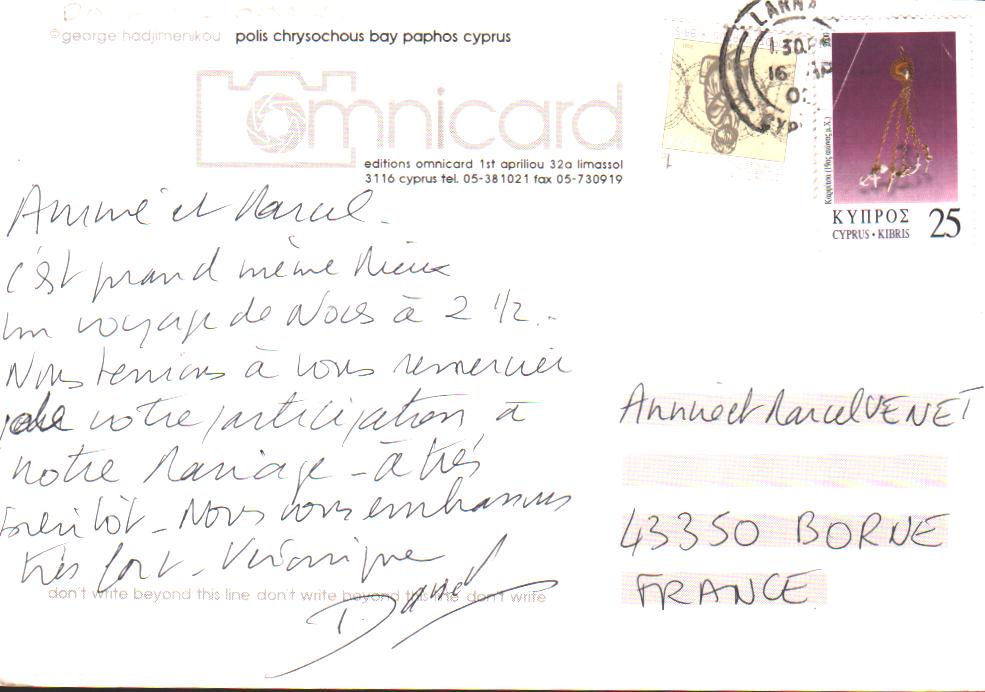 © george hadjimenikou polis chrysochous bay paphos cyprus
omnicard
editions omnicard 1st apriliou 32a limassol
3116 cyprus tel. 05-381021 fax 05-730919
Annie et Marcel.
C'est quand même mieux
un voyage de Noces à 2 1/2..
Nous tenions à vous remercier
de votre participation à
notre Mariage - à très
bientôt - Nous vous embrassons
très fort - Véronique
Daniel
don't write beyond this line don't write beyond this line don't write
LARN
1.30
16
CYP
ΚΥΠΡΟΣ
CYPRUS • KIBRIS 25
Annie et Marcel VENET
43350 BORNE
FRANCE